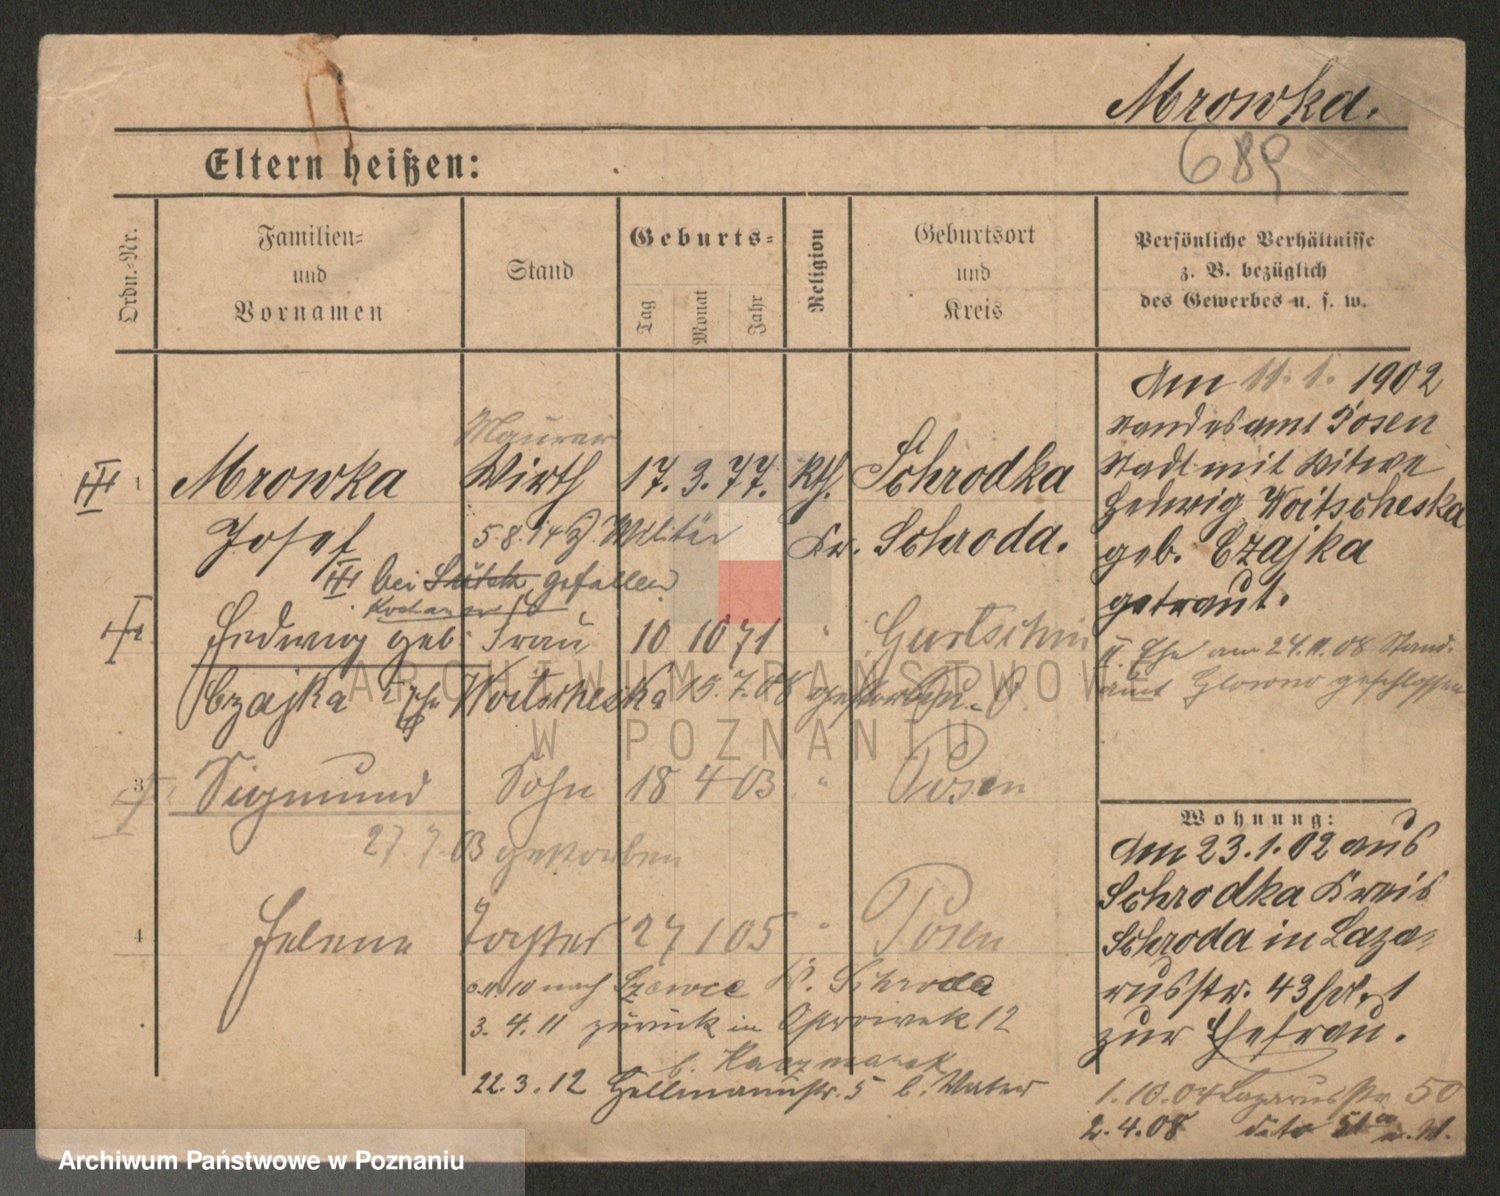 Mrowka.
689
Eltern heißen:
Ordn.-Nr.
Familien=
und
Vornamen
Stand
Geburts=
Tag
Monat
Jahr
Religion
Geburtsort
und
Kreis
Persönliche Verhältnisse
z. B. bezüglich
des Gewerbes u. s. w.
Maurer
1 Mrowka Wirth 17. 3. 77. kth. Schrodka
Josef 5.8.14 z. Militär Kr. Schroda.
bei gefallen
2 Hedwig geb. Frau 10 10 71 " Gurtschin
Czajka Woitscheska 15.7.08 gestorben
3 Sigmund Sohn 18 4 03 " Posen
27.7.03 gestorben
4 Helene Tochter 27 1 05 " Posen
nach K. Schroda
3. 4. 11 zurück in 12
b. Kaczmarek
22.3.12 Hellmannstr. 5 b. Vater
Am 11. 1. 1902
Standesamt Posen
Stadt mit Witwe
Hedwig Woitscheska
geb. Czajka
getraut.
II. Ehe am 24.11.08 Stand.
amt Glowno geschlossen
Wohnung:
Am 23.1.02 aus
Schrodka Kreis
Schroda in Laza-
russtr. 43
zur Ehefrau.
1.10.04 Lazarusstr 50
2.4.08 dito
ARCHIWUM PAŃSTWOWE
W POZNANIU
Archiwum Państwowe w Poznaniu